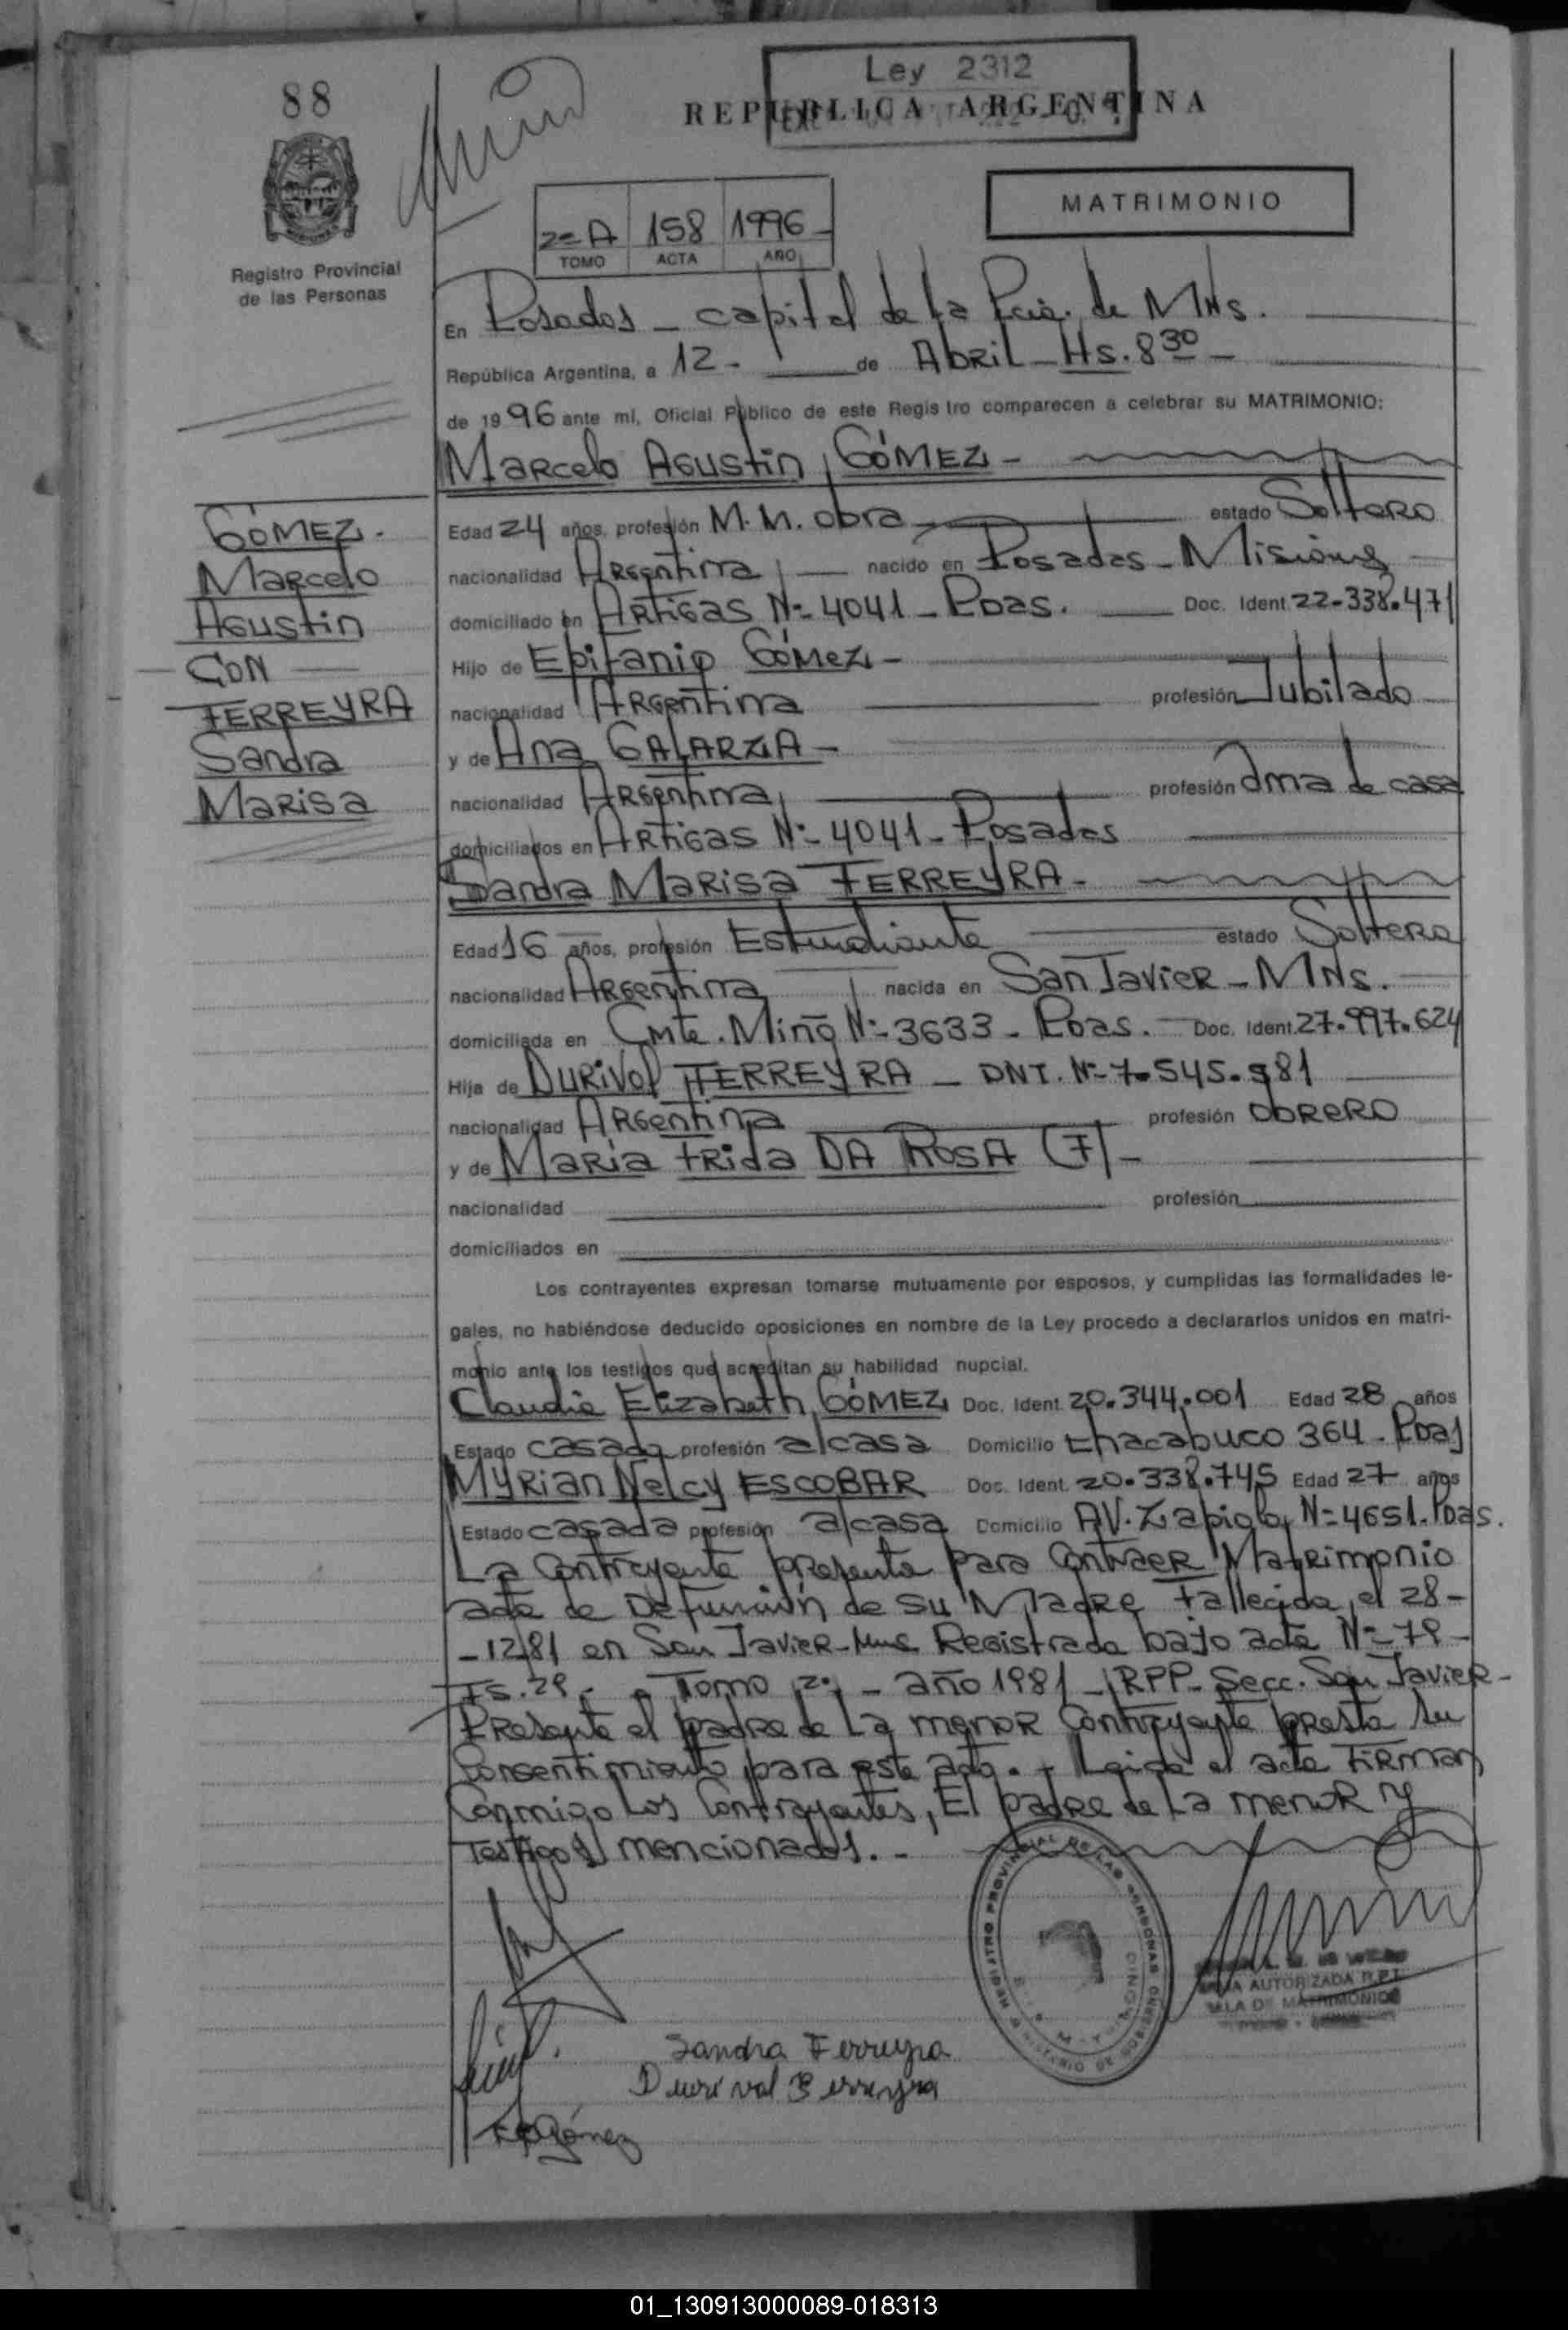 88
Ley 2312
REPUBLICA ARGENTINA
MATRIMONIO
2º A 158 1996
TOMO ACTA AÑO
Registro Provincial
de las Personas
En Posadas - capital de la Pcia. de Mns.
República Argentina, a 12 - de Abril - Hs. 8 30 -
de 1996 ante mí, Oficial Público de este Registro comparecen a celebrar su MATRIMONIO:
Marcelo Agustin GÓMEZ -
Edad 24 años, profesión M. M. obra estado Soltero
nacionalidad Argentina nacido en Posadas - Misiones
domiciliado en Artigas Nº 4041 - Pdas. Doc. Ident. 22.338.471
Hijo de Epifanio Gómez -
nacionalidad Argentina profesión Jubilado
y de Ana GALARZA -
nacionalidad Argentina profesión ama de casa
domiciliados en Artigas Nº 4041 - Posadas
Sandra Marisa FERREYRA -
Edad 16 años, profesión Estudiante estado Soltera
nacionalidad Argentina nacida en San Javier - Mns.
domiciliada en Cmte. Miño Nº 3633 - Pdas. - Doc. Ident. 27.997.624
Hija de Durival FERREYRA - DNI. Nº 7.545.981
nacionalidad Argentina profesión obrero
y de Maria Frida DA ROSA (F) -
nacionalidad profesión
domiciliados en
Los contrayentes expresan tomarse mutuamente por esposos, y cumplidas las formalidades le-
gales, no habiéndose deducido oposiciones en nombre de la Ley procedo a declararlos unidos en matri-
monio ante los testigos que acreditan su habilidad nupcial.
Claudia Elizabeth GÓMEZ Doc. Ident. 20.344.001 Edad 28 años
Estado casada profesión a/casa Domicilio Chacabuco 364 - Pdas
Myrian Nelcy ESCOBAR Doc. Ident. 20.338.745 Edad 27 años
Estado casada profesión a/casa Domicilio AV. Zapiola Nº 4651. Pdas.
La contrayente presenta para contraer Matrimonio
acta de Defunción de su Madre fallecida el 28-
-12-81 en San Javier - Mns Registrada bajo acta Nº 79 -
Fs. 29 - Tomo 2º - año 1981 - RPP - Secc. San Javier -
Presente el padre de La menor Contrayente presta su
Consentimiento para este acto. - Leida el acta Firman
Conmigo Los Contrayentes, El padre de La menor y
Testigos mencionados. -
GÓMEZ -
Marcelo
Agustin
CON
FERREYRA
Sandra
Marisa
REGISTRO PROVINCIAL DE LAS PERSONAS
MINISTERIO DE GOBIERNO
AUTORIZADA R.P.P.
SALA DE MATRIMONIOS
Sandra Ferreyra
Durival Ferreyra
Gómez
01_130913000089-018313